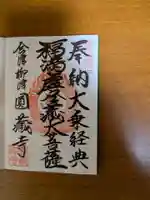 奉納大乗経典
福満虚空藏大菩薩
会津柳津
圓藏寺